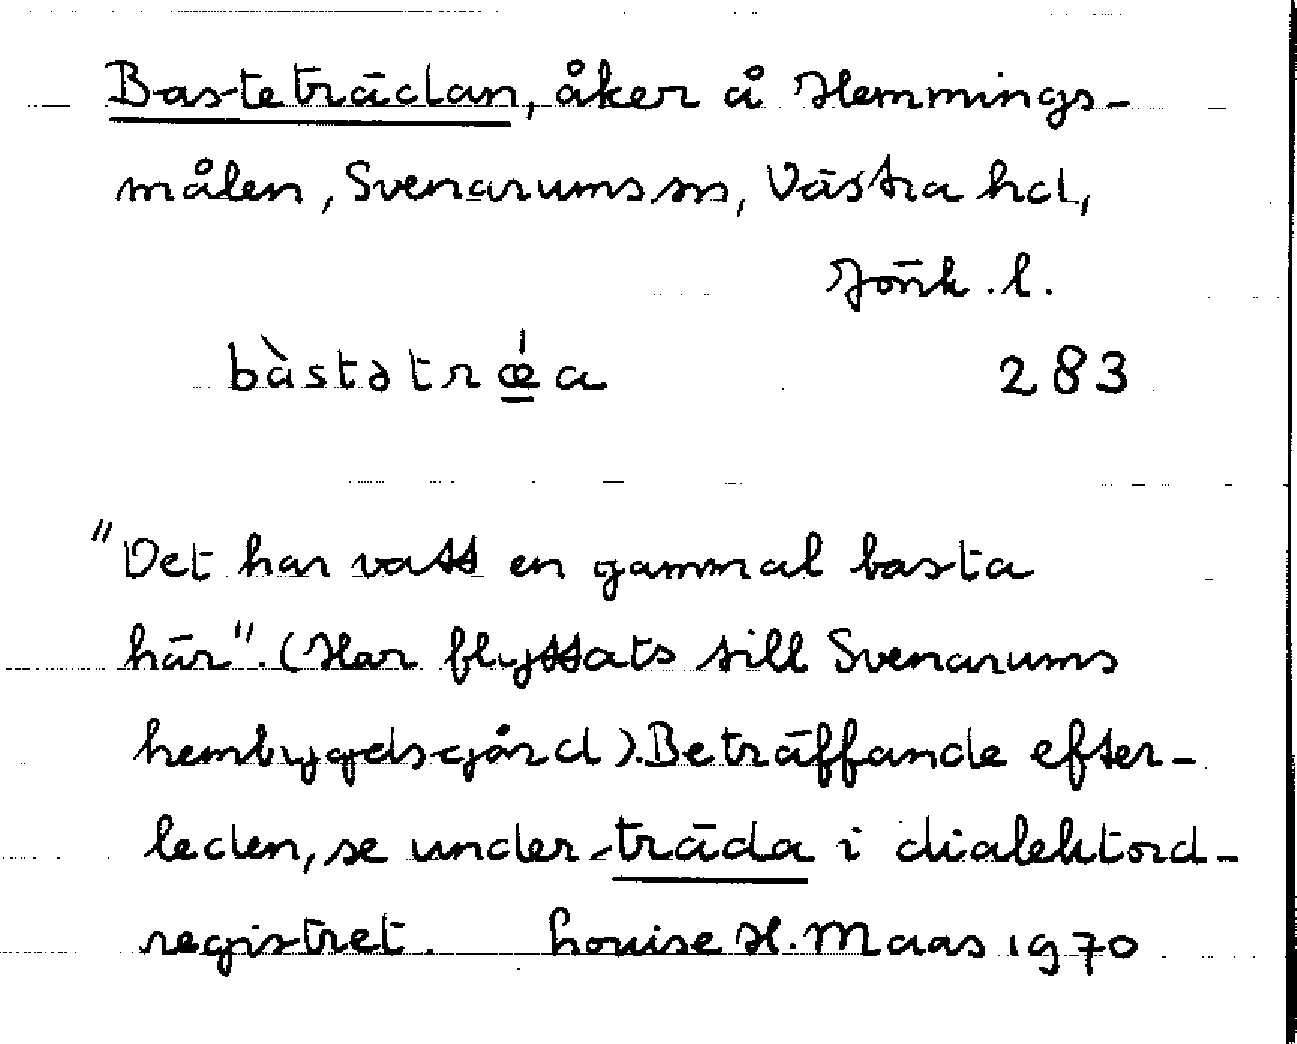 Basteträdan, åker å Hemmings-
målen, Svenarums sn, Västra hd,
Jönk. l.
bàstətrǽa 283
"Det har vatt en gammal basta
här". (Har flyttats till Svenarums
hembygdsgård). Beträffande efter-
leden, se under träda i dialektord-
registret. Louise H. Maas 1970